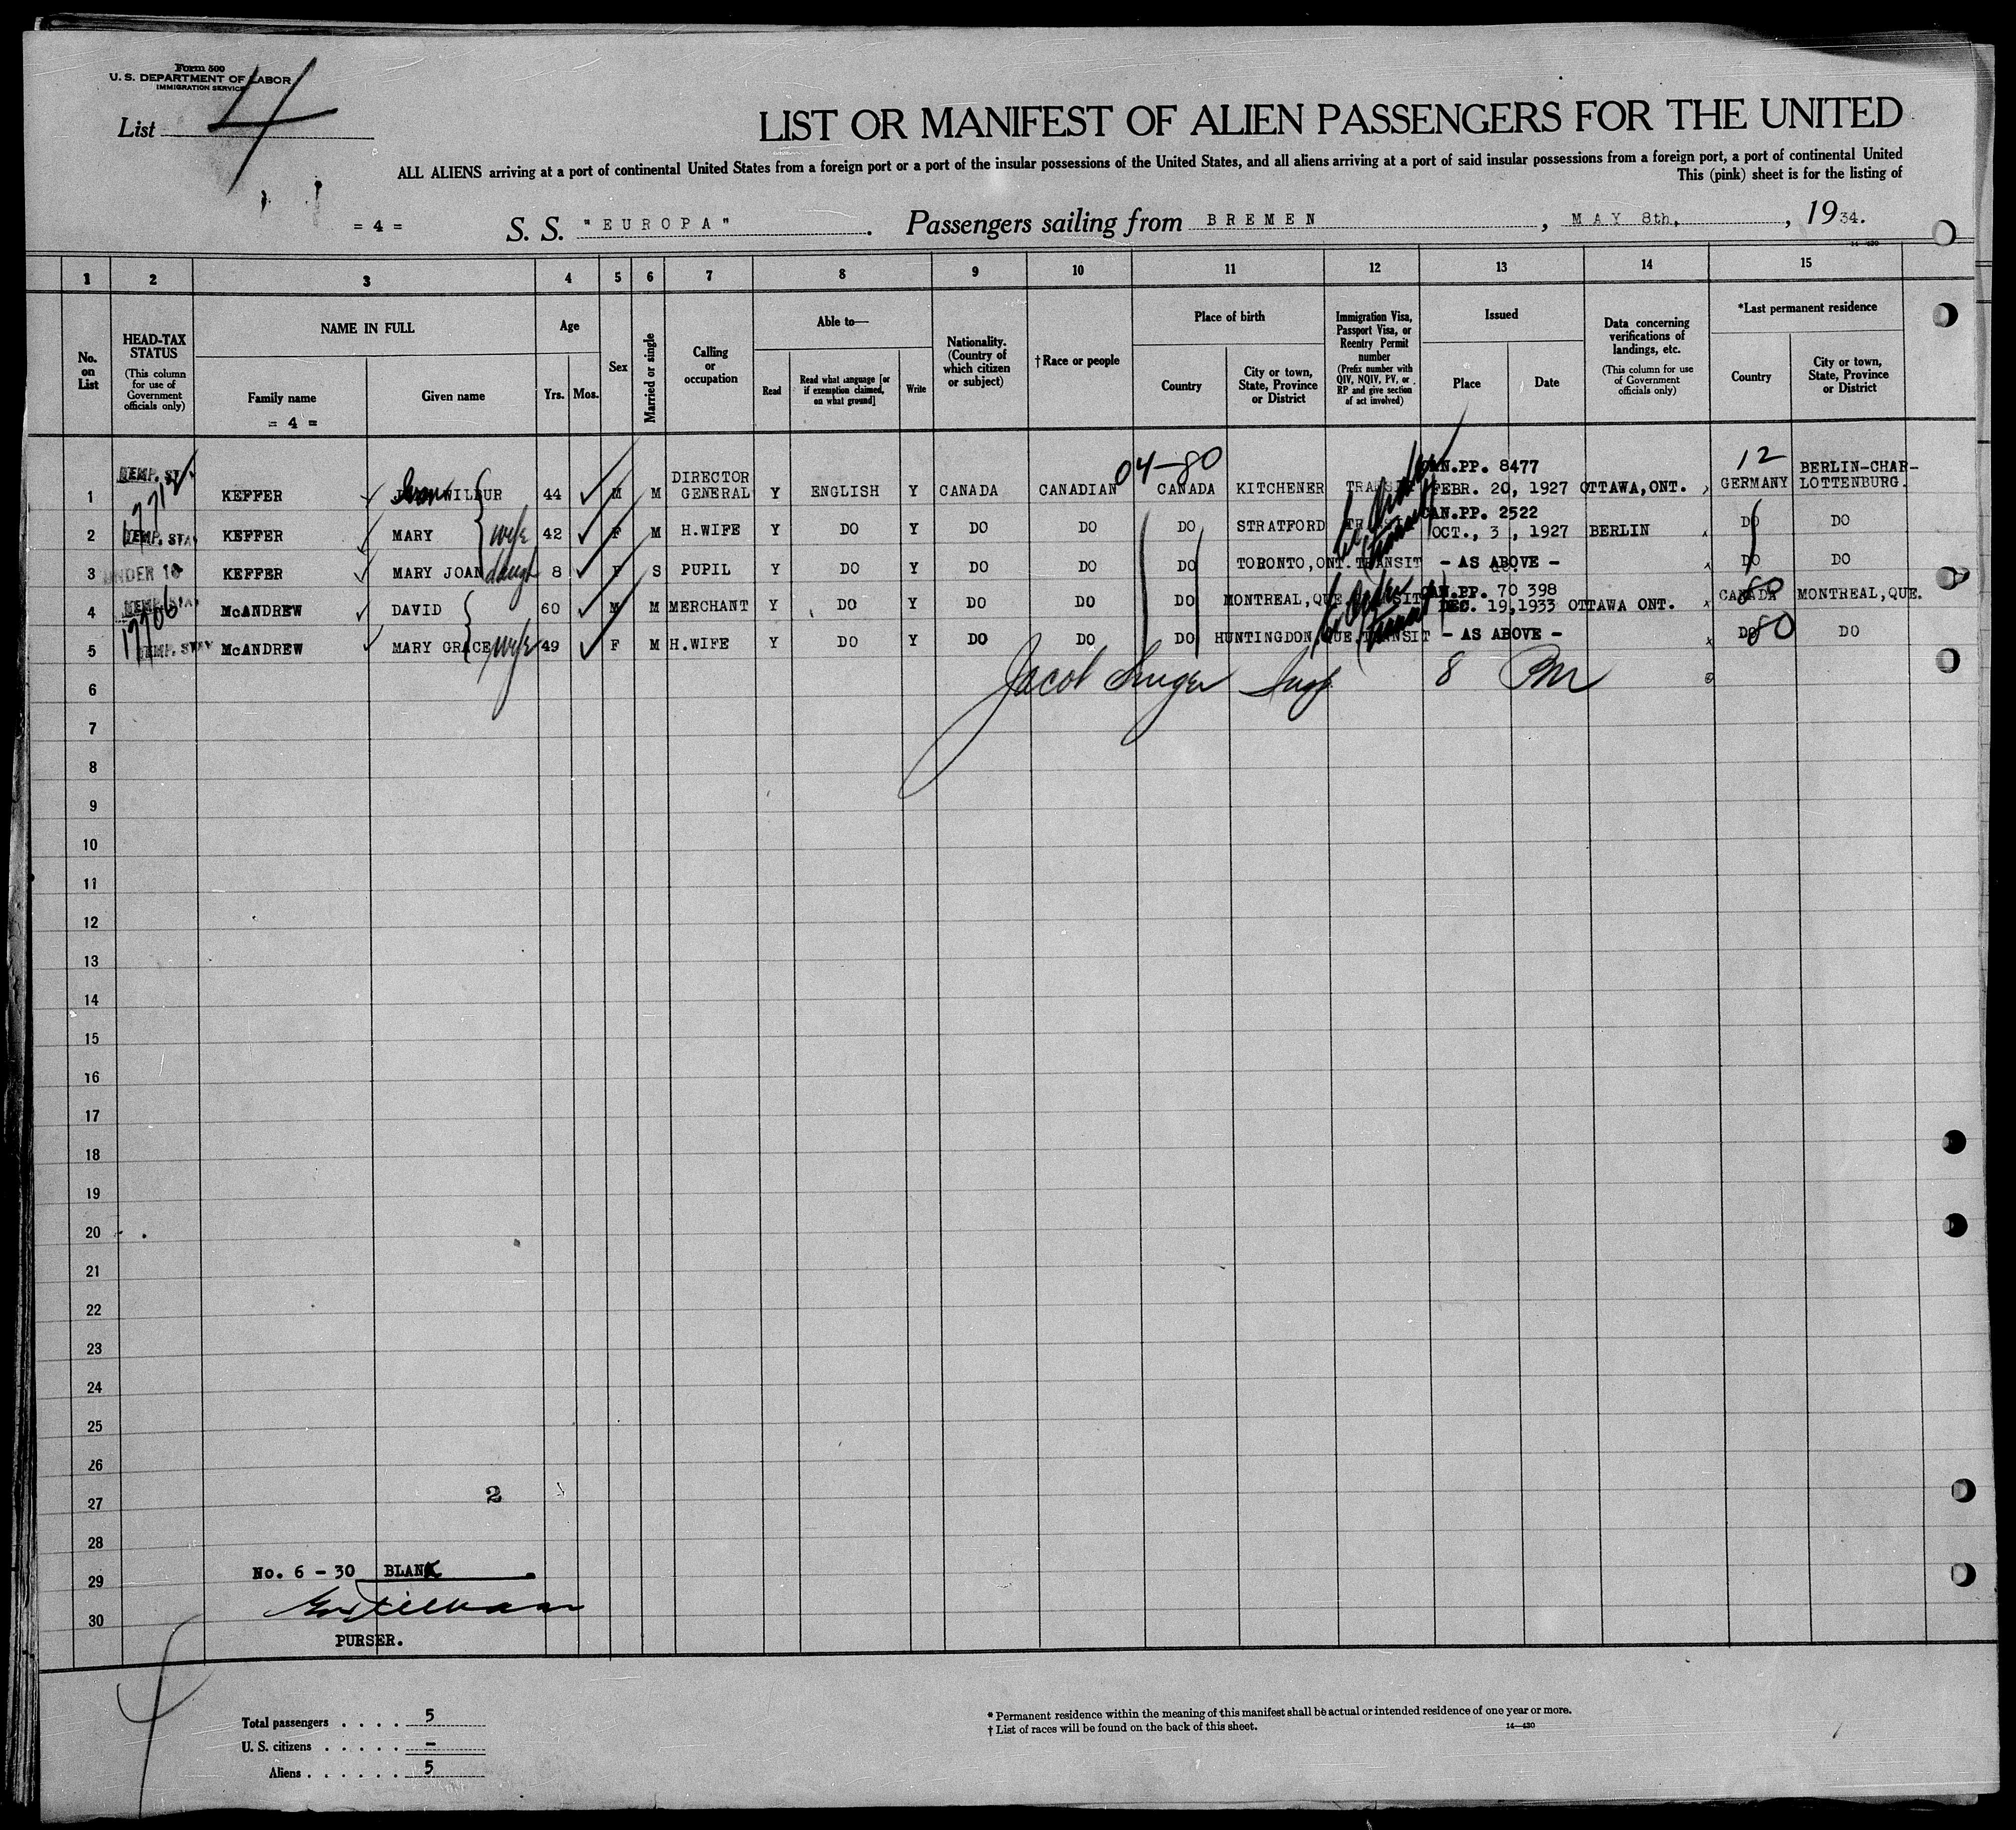 Form 500
U. S. DEPARTMENT OF LABOR
IMMIGRATION SERVICE
List 4
LIST OR MANIFEST OF ALIEN PASSENGERS FOR THE UNITED
ALL ALIENS arriving at a port of continental United States from a foreign port or a port of the insular possessions of the United States, and all aliens arriving at a port of said insular possessions from a foreign port, a port of continental United
This (pink) sheet is for the listing of
= 4 = S. S. "EUROPA". Passengers sailing from BREMEN, MAY 8th, , 1934.
14—430
1 2 3 4 5 6 7 8 9 10 11 12 13 14 15
No. on List
HEAD-TAX STATUS
(This column for use of Government officials only)
NAME IN FULL
Family name
= 4 =
Given name
Age
Yrs. Mos.
Sex
Married or single
Calling or occupation
Able to—
Read
Read what language [or if exemption claimed, on what ground]
Write
Nationality. (Country of which citizen or subject)
†Race or people
Place of birth
Country
City or town, State, Province or District
Immigration Visa, Passport Visa, or Reentry Permit number
(Prefix number with QIV, NQIV, PV, or RP and give section of act involved)
Issued
Place
Date
Data concerning verifications of landings, etc.
(This column for use of Government officials only)
*Last permanent residence
Country
City or town, State, Province or District
04-80
12
TEMP. STAY
1 KEFFER WILBUR 44 M M DIRECTOR GENERAL Y ENGLISH Y CANADA CANADIAN CANADA KITCHENER TRANSIT CAN.PP. 8477 FEBR. 20, 1927 OTTAWA,ONT. GERMANY BERLIN-CHARLOTTENBURG.
TEMP. STAY
2 KEFFER MARY wife 42 F M H.WIFE Y DO Y DO DO DO STRATFORD TRANSIT CAN.PP. 2522 OCT., 3 , 1927 BERLIN DO DO
UNDER 16
3 KEFFER MARY JOAN daugh 8 F S PUPIL Y DO Y DO DO DO TORONTO,ONT. TRANSIT - AS ABOVE - DO DO
TEMP. STAY
17706
4 McANDREW DAVID 60 M M MERCHANT Y DO Y DO DO DO MONTREAL,QUE. TRANSIT CAN.PP. 70 398 DEC. 19,1933 OTTAWA ONT. CANADA 80 MONTREAL,QUE.
TEMP. STAY
5 McANDREW MARY GRACE wife 49 F M H.WIFE Y DO Y DO DO DO HUNTINGDON,QUE. TRANSIT - AS ABOVE - DO 80 DO
6 Jacob 8
7
8
9
10
11
12
13
14
15
16
17
18
19
20
21
22
23
24
25
26
27 2
28
29 No. 6 - 30 BLANK
30
PURSER.
Total passengers . . . . 5
U. S. citizens . . . . . –
Aliens . . . . . . 5
* Permanent residence within the meaning of this manifest shall be actual or intended residence of one year or more.
† List of races will be found on the back of this sheet.
14—430